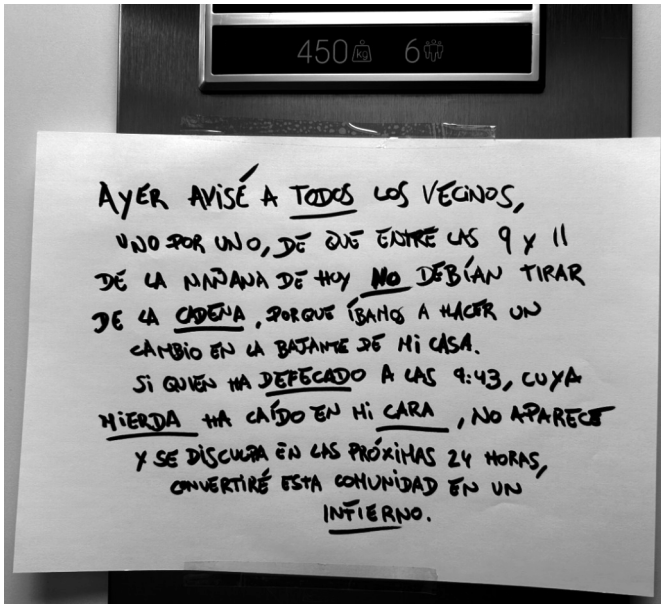 450 kg 6
AYER AVISÉ A TODOS LOS VECINOS,
UNO POR UNO, DE QUE ENTRE LAS 9 Y 11
DE LA MAÑANA DE HOY NO DEBÍAN TIRAR
DE LA CADENA, PORQUE ÍBAMOS A HACER UN
CAMBIO EN LA BAJANTE DE MI CASA.
SI QUIEN HA DEFECADO A LAS 9:43, CUYA
MIERDA HA CAÍDO EN MI CARA, NO APARECE
Y SE DISCULPA EN LAS PRÓXIMAS 24 HORAS,
CONVERTIRÉ ESTA COMUNIDAD EN UN
INFIERNO.